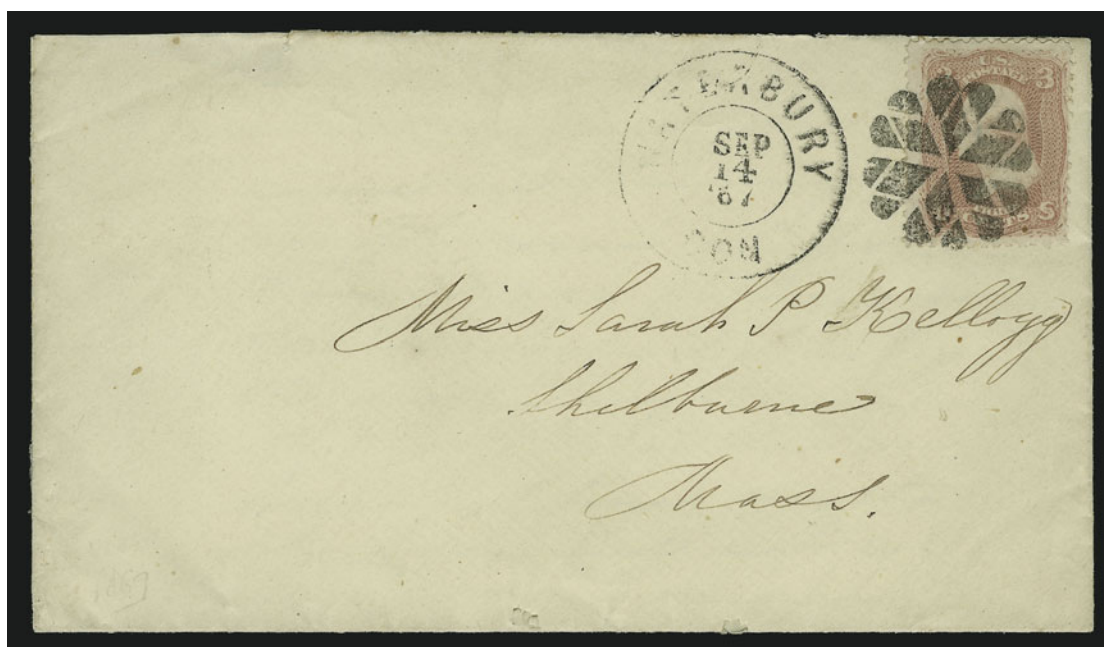 WATERBURY
SEP
14
67
CON
U.S.
POSTAGE
3
CENTS
Miss Sarah P Kellogg
Shelburne
Mass.